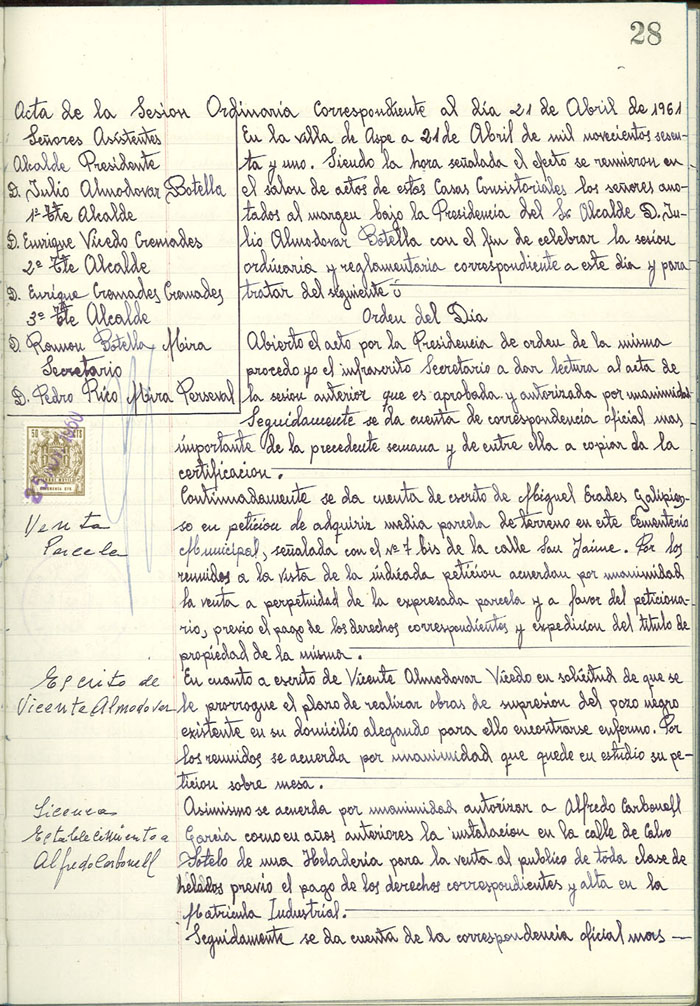 28
Acta de la Sesion Ordinaria Correspondiente al día 21 de Abril de 1961
Señores Asistentes
Alcalde Presidente
D. Julio Almodovar Botella
1º Tte Alcalde
D. Enrique Vicedo Cremades
2º Tte Alcalde
D. Enrique Cremades Cremades
3º Tte Alcalde
D. Ramon Botella Mira
Secretario
D. Pedro Rico Mira Perseval
En la villa de Aspe a 21 de Abril de mil novecientos sesen-
ta y uno. Siendo la hora señalada el efecto se reunieron en
el salon de actos de estas Casas Consistoriales los señores ano-
tados al margen bajo la Presidencia del Sr Alcalde D. Ju-
lio Almodovar Botella con el fin de celebrar la sesion
ordinaria y reglamentaria correspondiente a este día y para
tratar del siguiente:
Orden del Dia
Abierto el acto por la Presidencia de orden de la misma
procedo yo el infrascrito Secretario a dar lectura al acta de
la sesion anterior que es aprobada y autorizada por unanimidad
Seguidamente se da cuenta de correspondencia oficial mas
importante de la precedente semana y de entre ella a copiar da la
certificacion.
50 CTS
25 1960
Venta
Parcela
Continuadamente se da cuenta de escrito de Miguel Erades Galipien-
so en peticion de adquirir media parcela de terreno en este Cementerio
Municipal, señalada con el nº 7 bis de la calle San Jaime. Por los
reunidos a la vista de la indicada peticion acuerdan por unanimidad
la venta a perpetuidad de la expresada parcela y a favor del peticiona-
rio, previo el pago de los derechos correspondientes y expedicion del titulo de
propiedad de la misma.
Escrito de
Vicente Almodovar
En cuanto a escrito de Vicente Almodovar Vicedo en solicitud de que se
le prorrogue el plazo de realizar obras de supresion del pozo negro
existente en su domicilio alegando para ello encontrarse enfermo. Por
los reunidos se acuerda por unanimidad que quede en estudio su pe-
ticion sobre mesa.
Licencia
Establecimiento a
Alfredo Carbonell
Asimismo se acuerda por unanimidad autorizar a Alfredo Carbonell
Garcia como en años anteriores la instalacion en la calle de Calvo
Sotelo de una Heladeria para la venta al publico de toda clase de
helados previo el pago de los derechos correspondientes y alta en la
Matricula Industrial.
Seguidamente se da cuenta de la correspondencia oficial mas